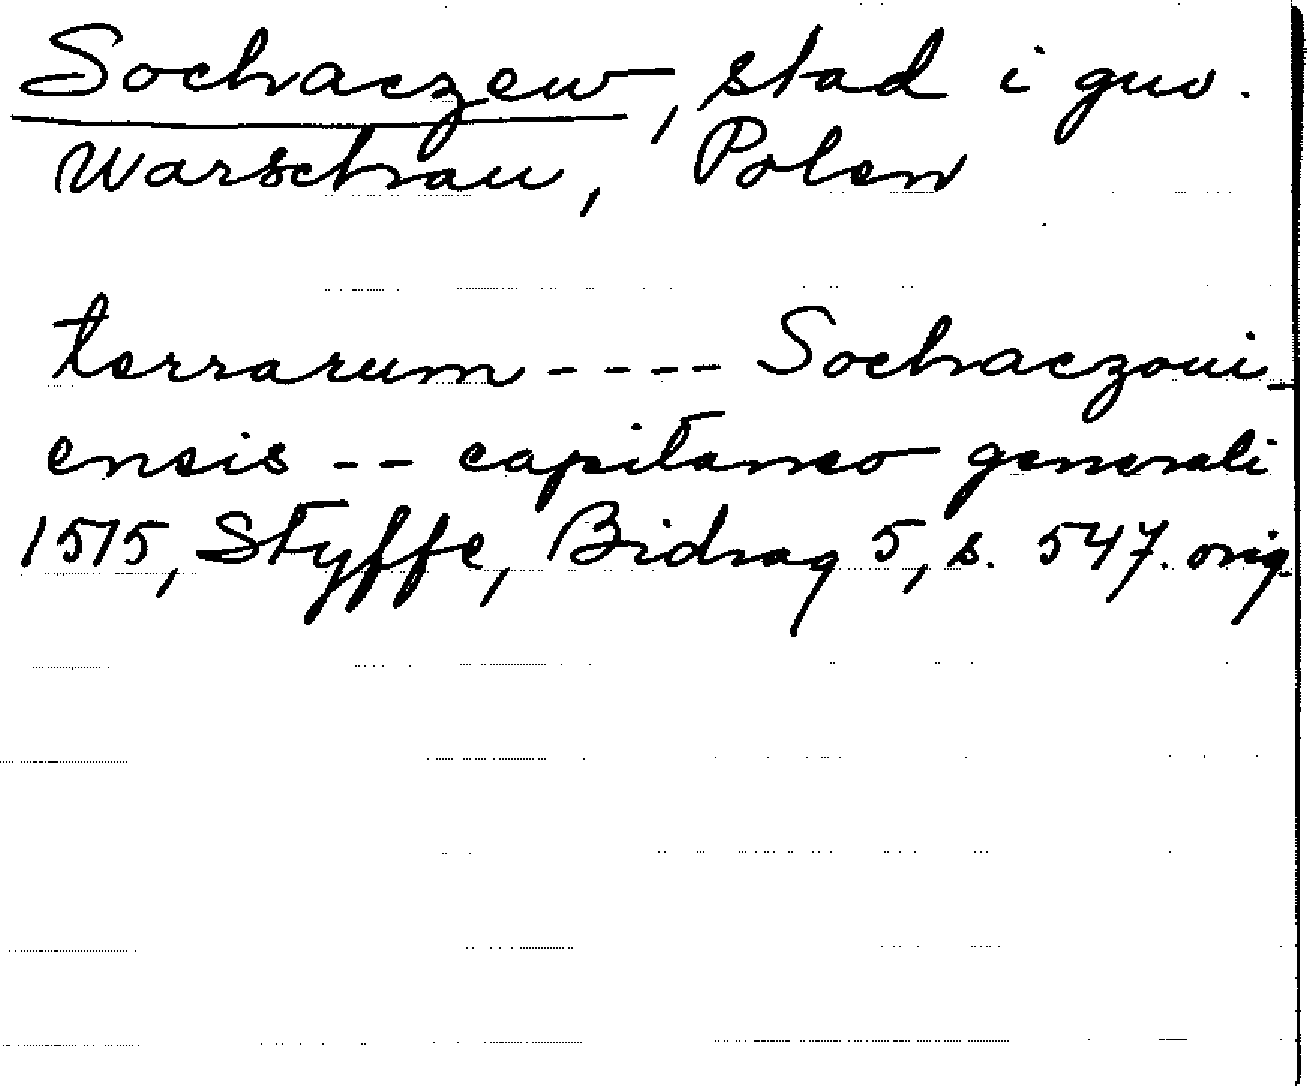 Sochaczew, stad i guv.
Warschau, Polen
terrarum - - - - Sochaczoui-
ensis - - capitaneo generali
1515, Styffe, Bidrag 5, s. 547. orig.